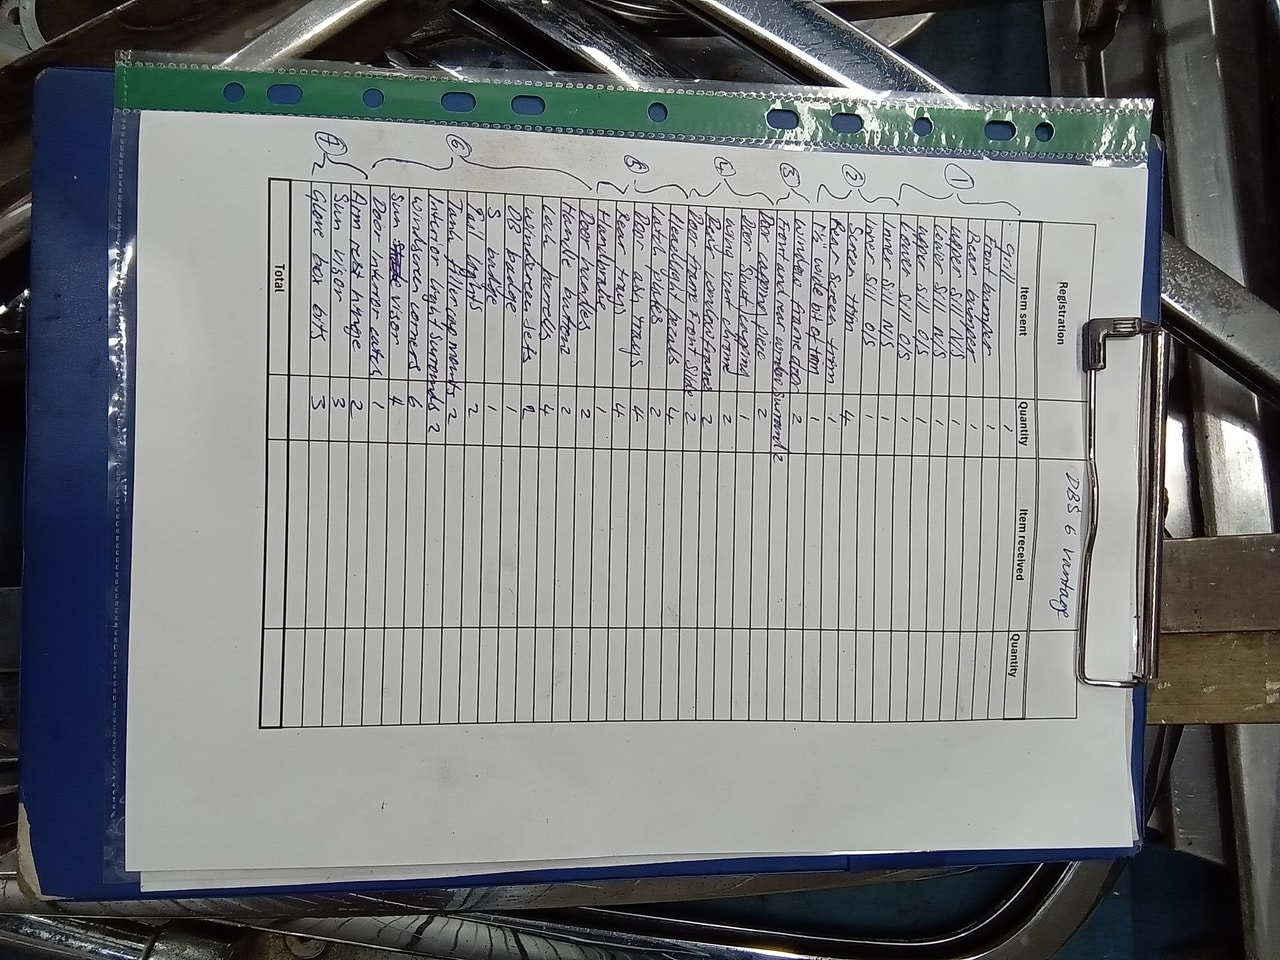 Registration DBS 6 Vantage
Item sent Quantity Item received Quantity
① Grill 1
Front bumper 1
Rear bumper 1
upper Sill N/S 1
Lower Sill N/S 1
upper Sill O/S 1
Lower Sill O/S 1
② Inner Sill N/S 1
Inner Sill O/S 1
Screen trim 4
Rear Screen trim 1
1 wide bit of trim 1
③ Window frame door 2
Front and rear window Surround 2
④ Door capping piece 2
Door Swist 1
Wing vent chrome 2
Back window frames 2
Door frame Front Slide 2
⑤ Headlight bezels 4
Latch plates 2
Door ash trays 4
Rear trays 4
Handbrake 1
⑥ Door handles 2
Handle button 2
Lock barrells 4
Windscreen Jets
DB badge 1
S badge 1
Tail lights 2
Tank fillering mounts 2
Interior light Surrounds 2
Windscreen corners 6
Sun visor 4
Door mirror outer 1
⑦ Arm rest hinge 2
Sun visor 3
Glove box bits 3
Total